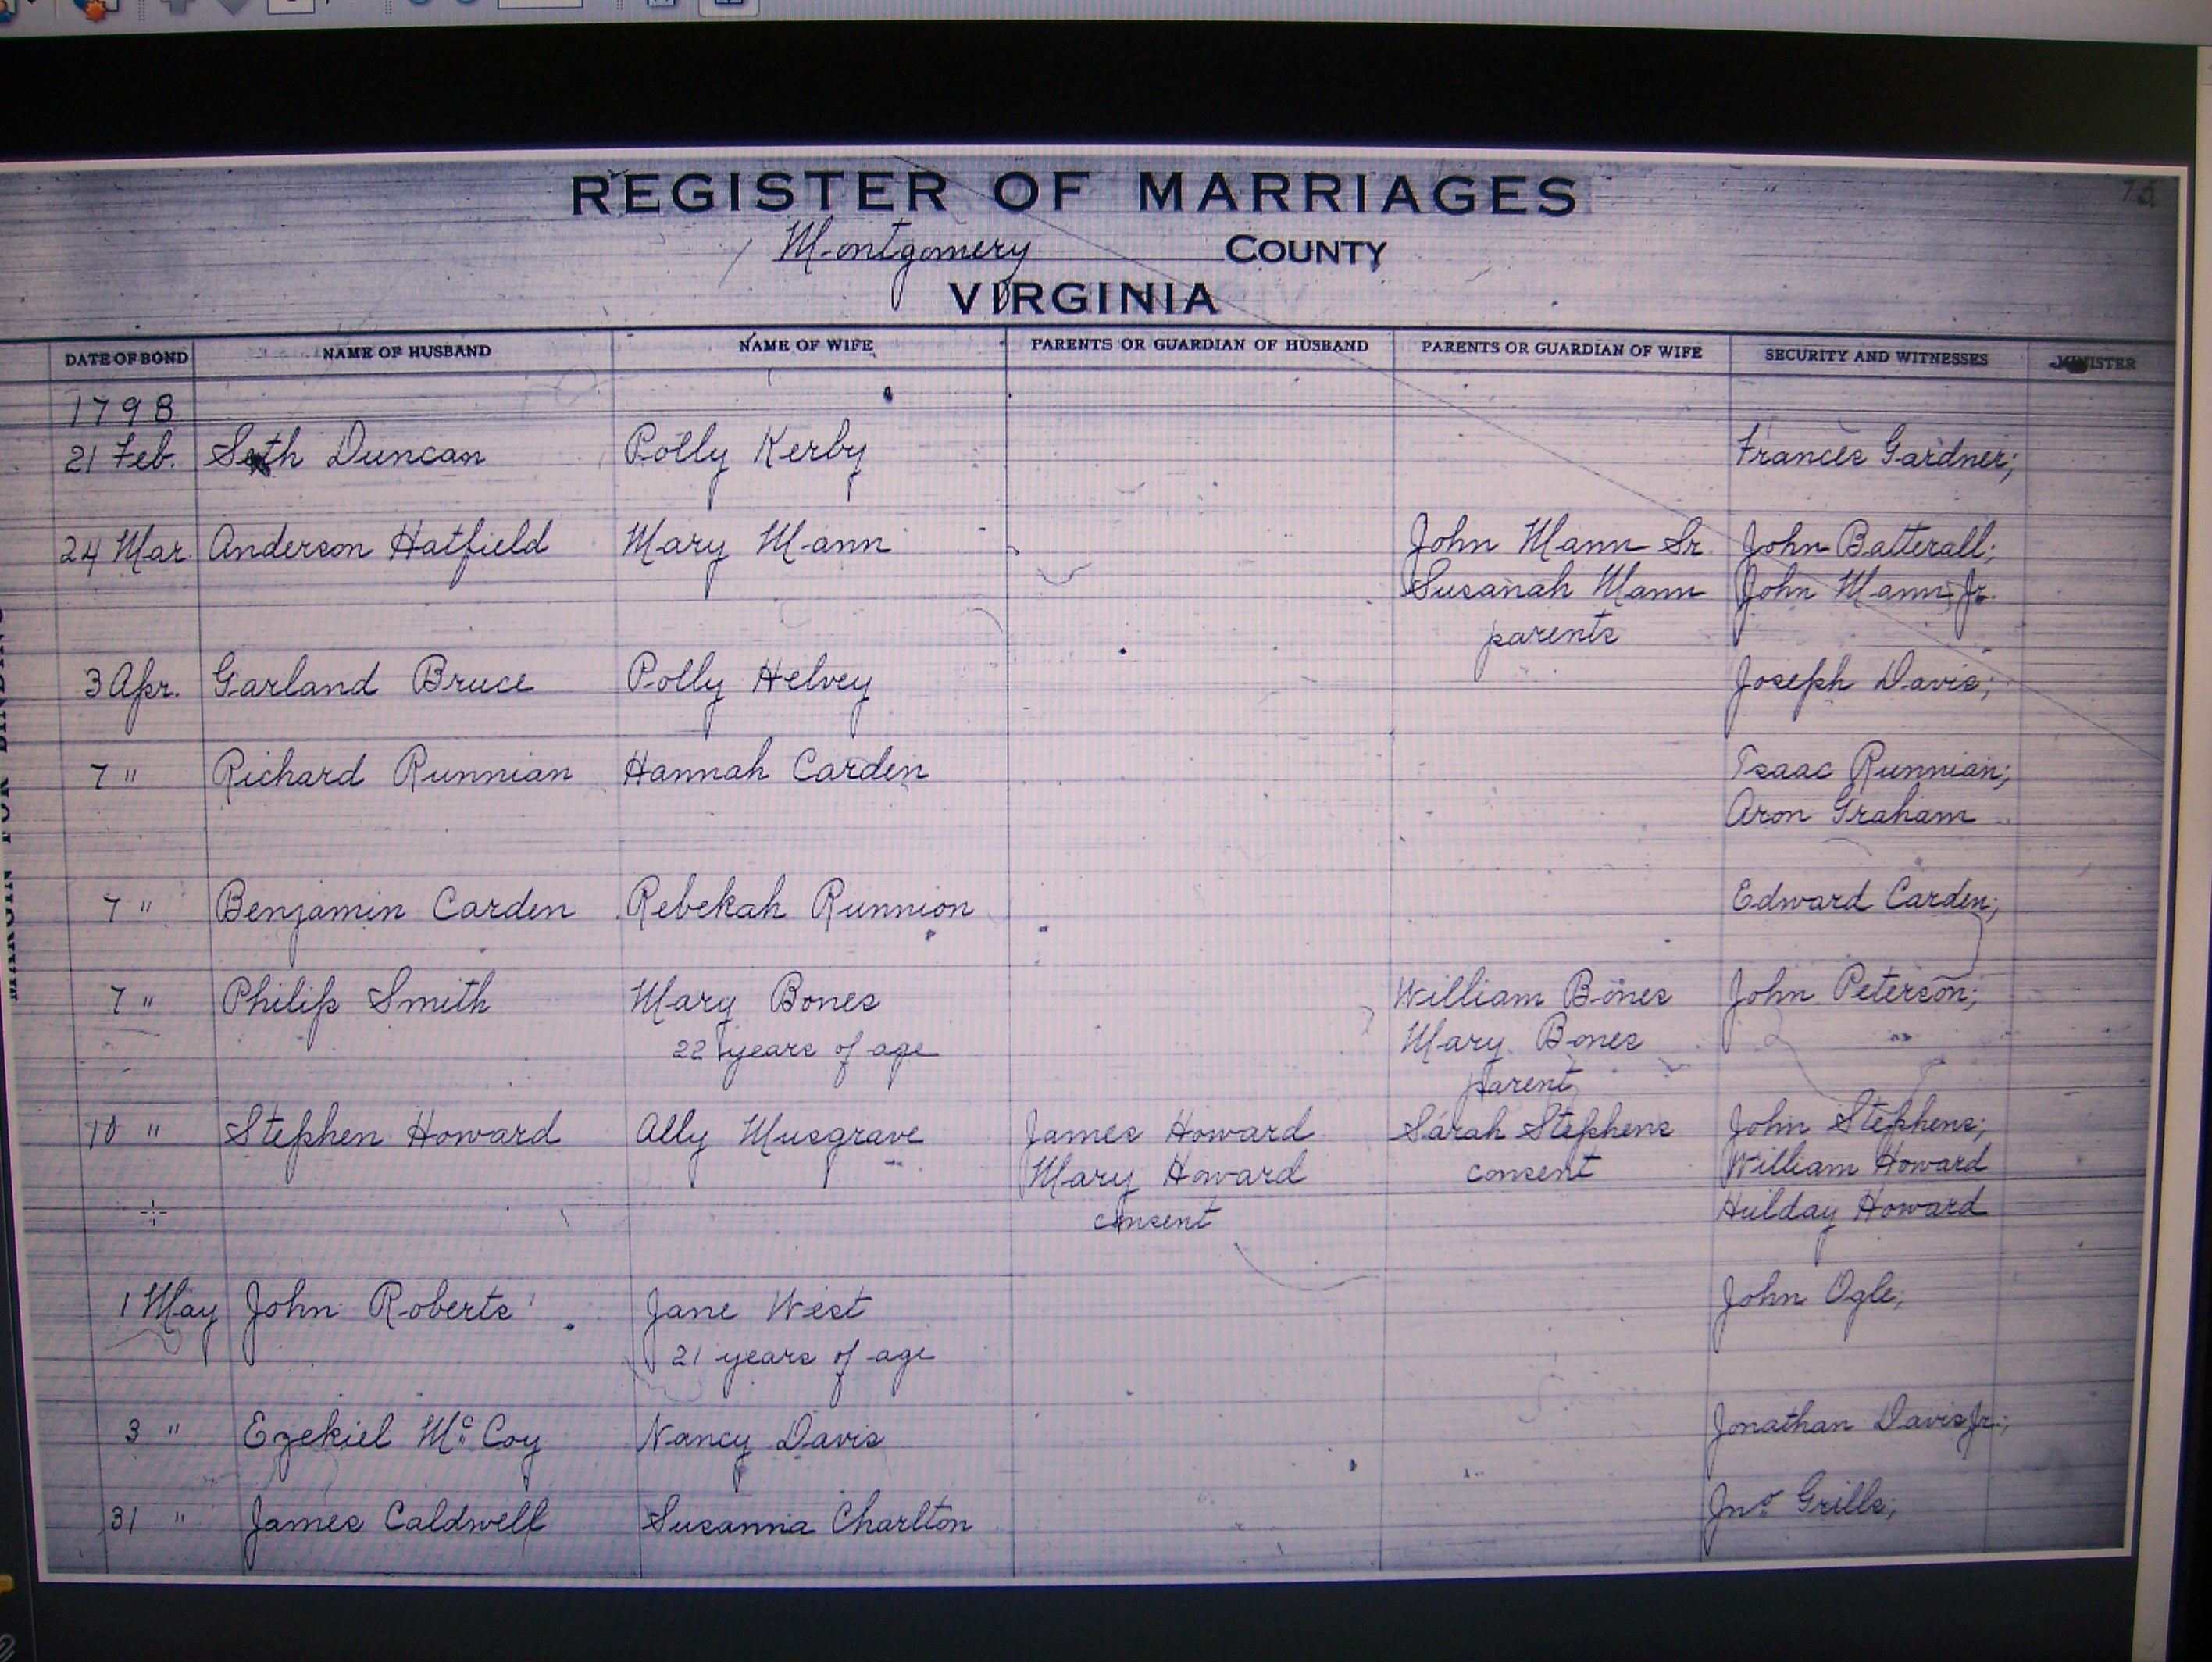 REGISTER OF MARRIAGES
Montgomery COUNTY
VIRGINIA
DATE OF BOND NAME OF HUSBAND NAME OF WIFE PARENTS OR GUARDIAN OF HUSBAND PARENTS OR GUARDIAN OF WIFE SECURITY AND WITNESSES MINISTER
1798
21 Feb. Seth Duncan Polly Kerby Frances Gardner;
24 Mar. Anderson Hatfield Mary Mann John Mann Sr. John Batterall;
Susanah Mann John Mann Jr.
parents
3 Apr. Garland Bruce Polly Helvey Joseph Davis;
7 " Richard Runnian Hannah Carden Isaac Runnian;
Aron Graham
7 " Benjamin Carden Rebekah Runnion Edward Carden;
7 " Philip Smith Mary Bones William Bones John Peterson;
22 years of age Mary Bones
parent
10 " Stephen Howard Ally Musgrave James Howard Sarah Stephens John Stephens;
Mary Howard consent William Howard
consent Hulday Howard
1 May John Roberts Jane West John Ogle;
21 years of age
3 " Ezekiel McCoy Nancy Davis Jonathan Davis Jr.;
31 " James Caldwell Susanna Charlton Jno. Grills;
MARGIN FOR BINDING